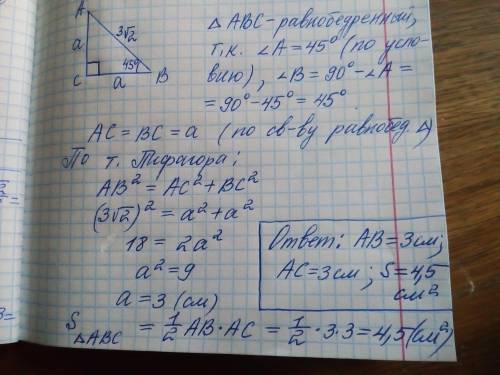 A
3√2
a
45°
C
a
B
△ABC-равнобедренный,
т.к. ∠A=45° (по усло-
вию), ∠B=90°-∠A=
=90°-45°=45°.
AC=BC=a (по св-ву равнобед. △)
По т. Пифагора:
AB²=AC²+BC²
(3√2)²=a²+a²
18=2a²
a²=9
a=3 (см)
S△ABC=½AB·AC=½·3·3=4,5(см²)
Ответ: AB=3см;
AC=3см; S=4,5
см²